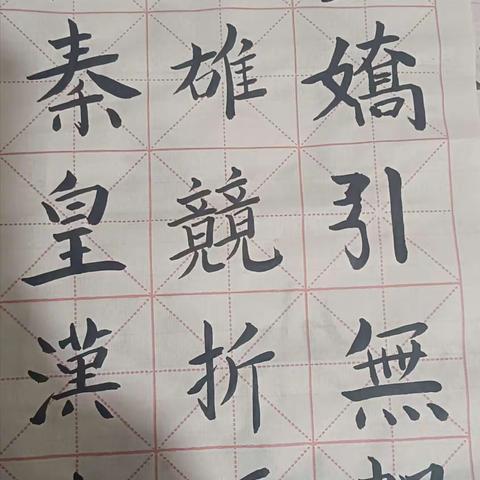 嬌引無
雄競折
秦皇漢